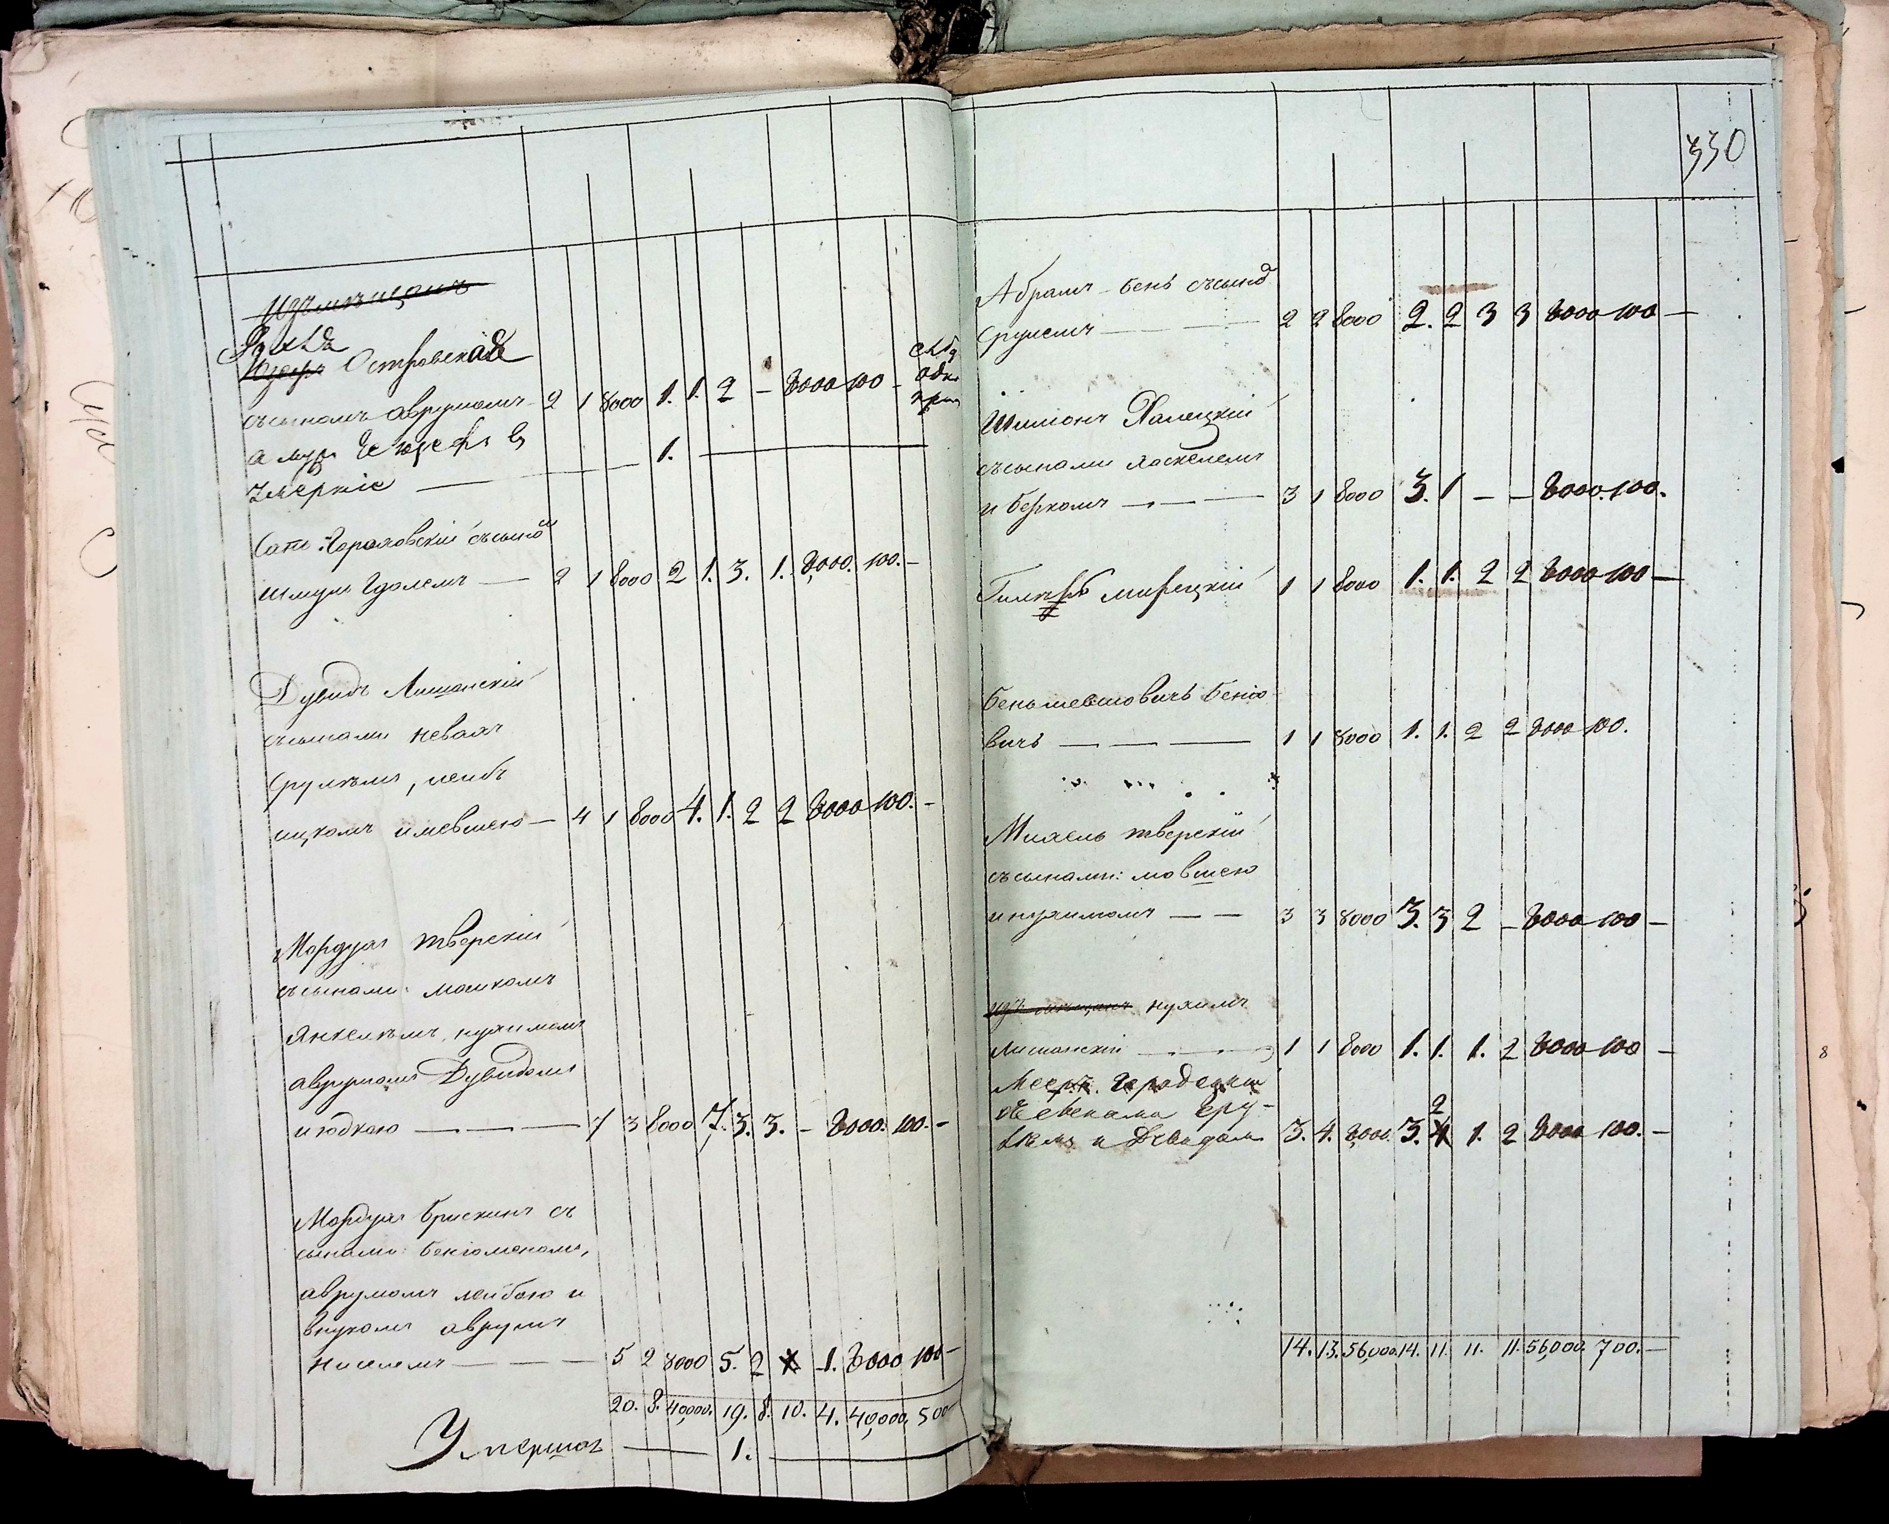 Островская
съ сыномъ Аврумомъ 2 1 8000 1. 1. 2 – 8000 100 –
а мужъ 1.
умеръ
Гороховскій съ сыномъ
Шмуль 2 1 8000 2 1. 3. 1. 8,000. 100. –
Дувидъ Лишанскій
съ сынами Невахъ
Срулемъ, Лейбъ
Ицкомъ и Мевшею — 4 1 8000 4. 1. 2 2 8000 100. –
Мордухъ Тверскій
съ сынами: Мошкомъ
Янкелемъ, Нухимомъ
Аврумомъ Дувидомъ
и Юдкою — — — 7 3 8000 7. 3. 3. – 8000. 100. –
Мордухъ Брискинъ съ
сынами: Беніоменомъ,
Аврумомъ Лейбою и
внукомъ Аврумъ
Ниселемъ — — — 5 2 8000 5. 2 1. 8000 100 –
20. 8. 40,000. 19. 8. 10. 4. 40,000. 500
Умершихъ — 1. —
330
Абрамъ Бень съ сыномъ
Срулемъ — — 2 2 8000 2. 2 3 3 8000 100 —
Шимонъ Халецкій
съ сынами Хаскелемъ
и Беркомъ — — — 3 1 8000 3. 1 – – 8000. 100.
Мирецкій 1 1 8000 1. 1. 2 2 8000 100 —
Беньшевшовичь Беніо-
вичь — — — 1 1 8000 1. 1. 2 2 8000 100.
Михель Тверскій
съ сынами: Мовшею
и Нухимомъ — — 3 3 8000 3. 3 2 – 8000 100 –
Нухимъ
Лишанскій — — — 1 1 8000 1. 1. 1. 2 8000 100 –
2
и Давидомъ 3. 4. 8,000. 3. 1. 2 8000 100. –
14. 13. 56,000. 14. 11. 11. 11. 56,000. 700. —